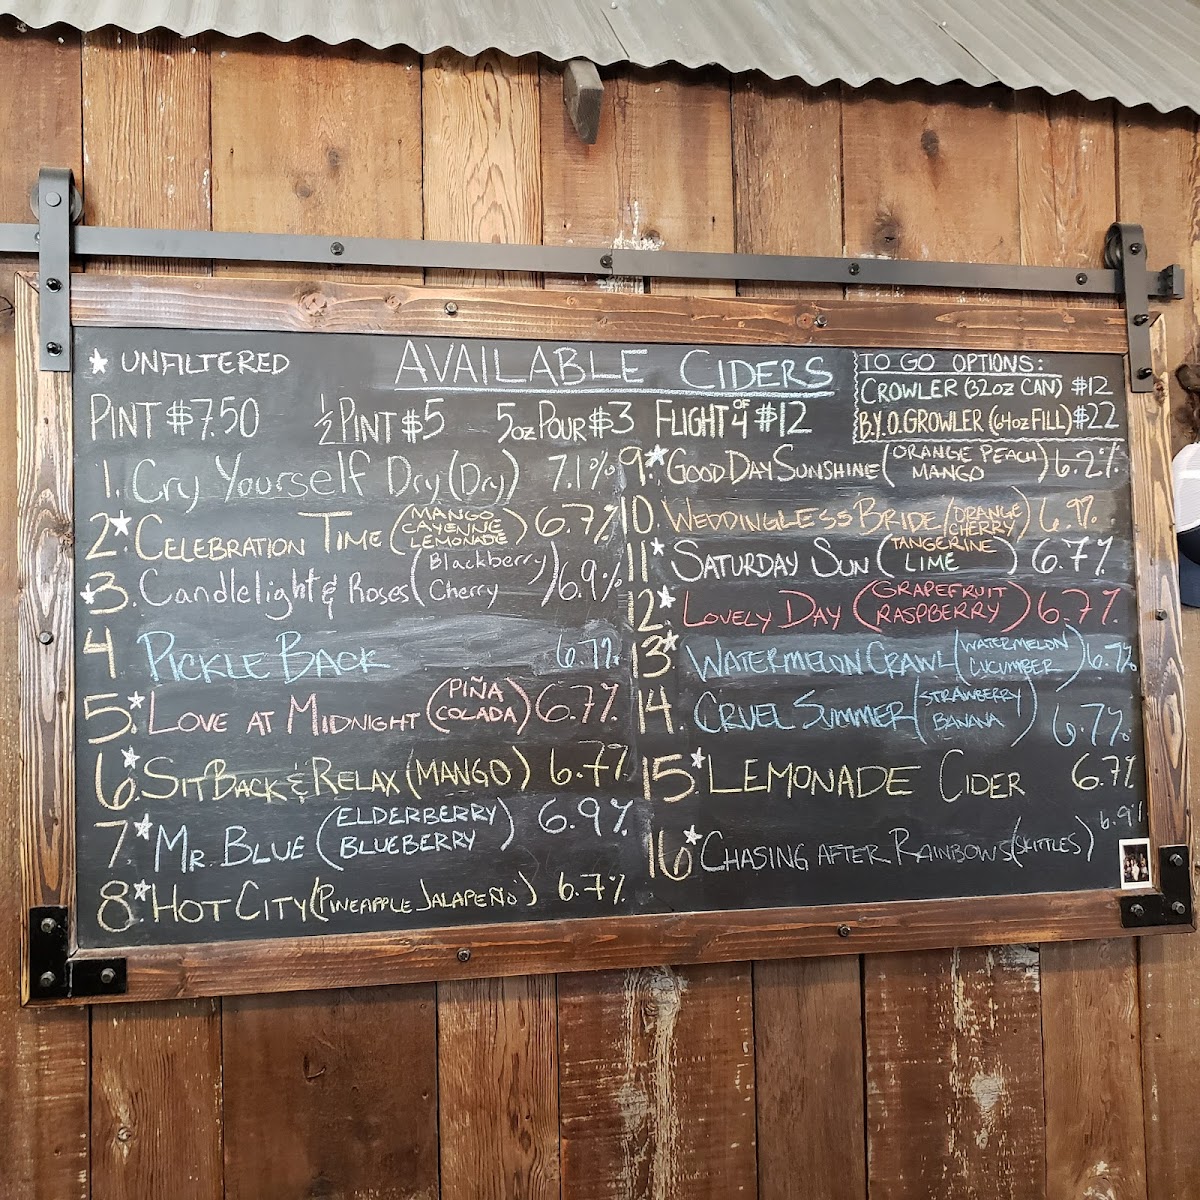 ★ UNFILTERED
AVAILABLE CIDERS
PINT $7.50 ½ PINT $5 5oz POUR $3 FLIGHT OF 4 $12
TO GO OPTIONS:
CROWLER (32oz CAN) $12
B.Y.O. GROWLER (64oz FILL) $22
1. Cry Yourself Dry (Dry) 7.1%
2.★ CELEBRATION TIME (MANGO CAYENNE LEMONADE) 6.7%
★3. Candlelight & Roses (Blackberry Cherry) 6.9%
4 PICKLE BACK 6.7%
5.★ LOVE AT MIDNIGHT (PIÑA COLADA) 6.7%
6.★ SIT BACK & RELAX (MANGO) 6.7%
7.★ MR. BLUE (ELDERBERRY BLUEBERRY) 6.9%
8.★ HOT CITY (PINEAPPLE JALAPEÑO) 6.7%
9.★ GOOD DAY SUNSHINE (ORANGE PEACH MANGO) 6.2%
10. WEDDINGLESS BRIDE (ORANGE CHERRY) 6.9%
11.★ SATURDAY SUN (TANGERINE LIME) 6.7%
12.★ LOVELY DAY (GRAPEFRUIT RASPBERRY) 6.7%
13.★ WATERMELON CRAWL (WATERMELON CUCUMBER) 6.7%
14. CRUEL SUMMER (STRAWBERRY BANANA) 6.7%
15.★ LEMONADE CIDER 6.7%
16.★ CHASING AFTER RAINBOWS (SKITTLES) 6.9%